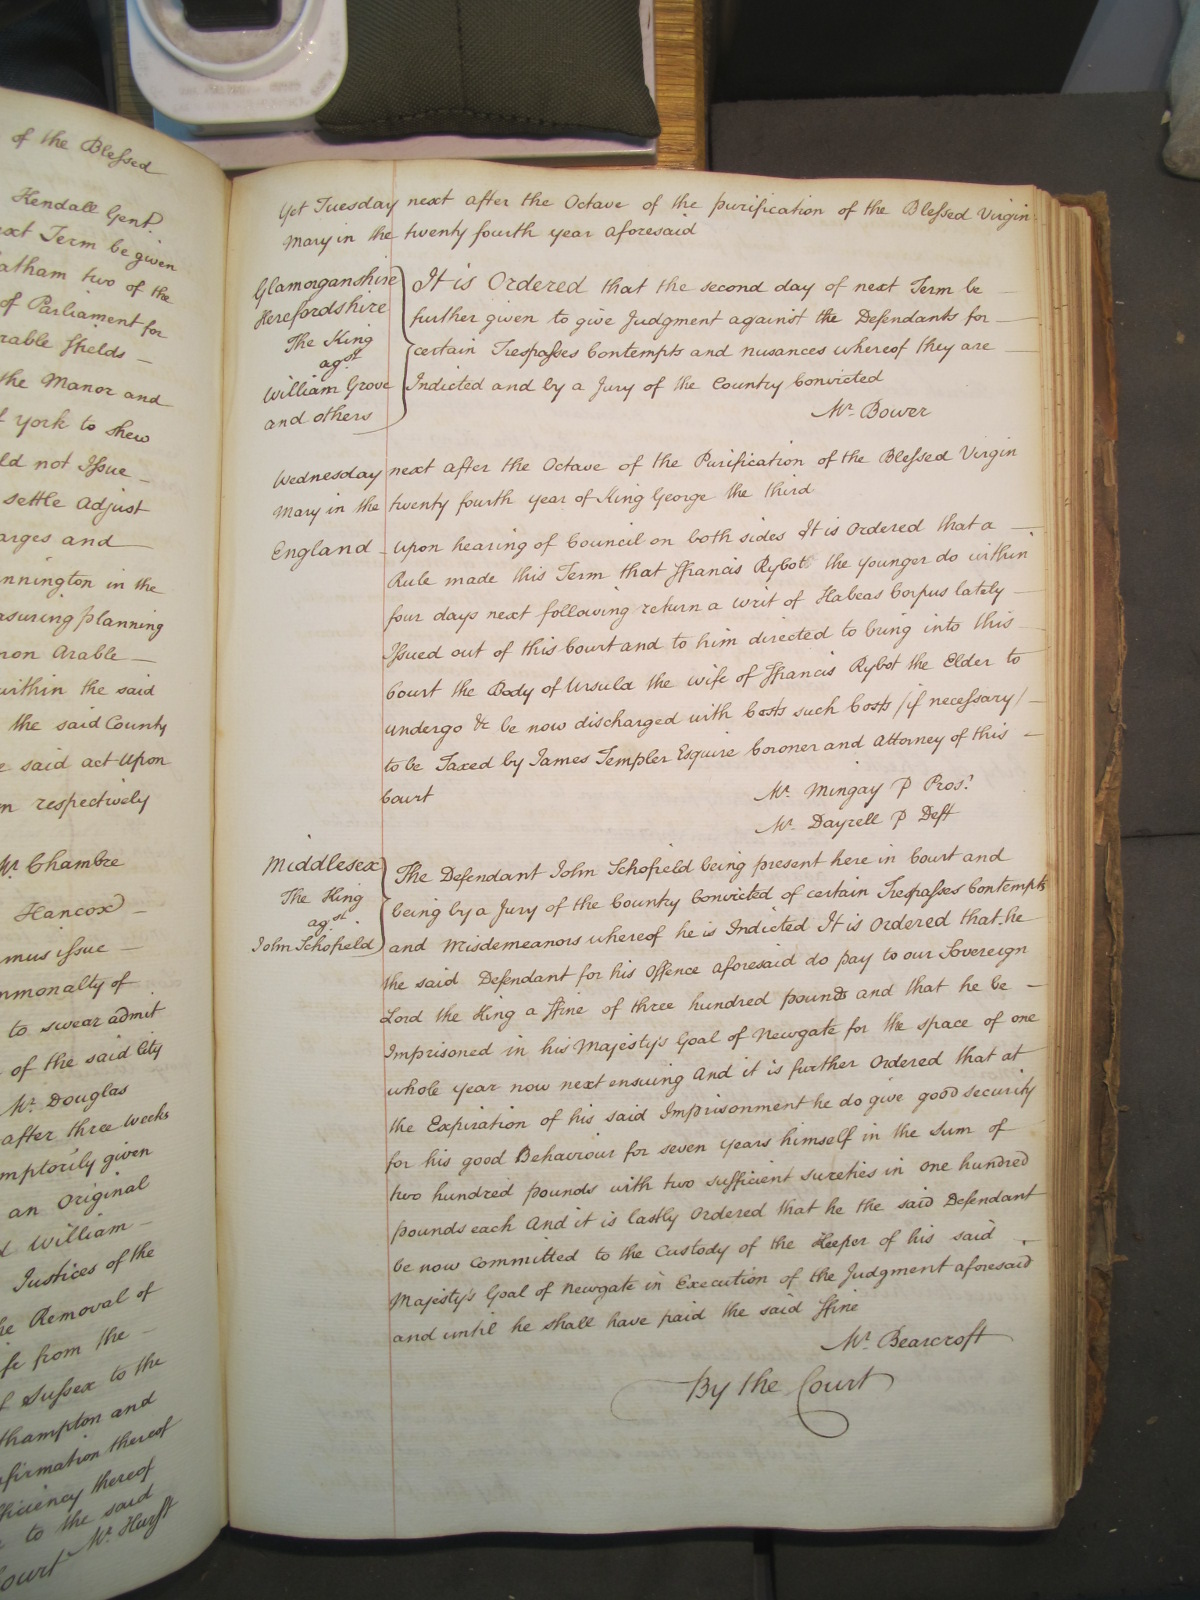 of the Blessed
Kendall Gent.
next Term be given
Latham two of the
of Parliament for
arable ffields —
the Manor and
of York to shew
ld not Issue —
settle Adjust
arges and —
nnington in the
asuring planning
mon Arable —
within the said
the said County
e said act Upon
m respectively
Mr. Chambre
Hancox —
mus issue —
mmonalty of
to swear admit
of the said City
Mr. Douglas
after three weeks
mptorily given
an Original
d William —
Justices of the
he Removal of
ife from the —
of Sussex to the
thampton and
nfirmation thereof
fficiency thereof
to the said
Court Mr. Hurst
Yet Tuesday next after the Octave of the purification of the Blessed Virgin
Mary in the twenty fourth year aforesaid
Glamorganshire
Herefordshire
The King
agst.
William Grove
and others
It is Ordered that the second day of next Term be —
further given to give Judgment against the Defendants for —
certain Trespasses Contempts and nusances whereof they are —
Indicted and by a Jury of the Country Convicted
Mr. Bower
Wednesday next after the Octave of the Purification of the Blessed Virgin
Mary in the twenty fourth year of King George the third
England – Upon hearing of Council on both sides It is Ordered that a —
Rule made this Term that ffrancis Rybot the younger do within
four days next following return a writ of Habeas Corpus lately —
Issued out of this Court and to him directed to bring into this —
Court the Body of Ursula the wife of ffrancis Rybot the Elder to
undergo &c be now discharged with Costs such Costs /if necessary/ —
to be Taxed by James Templer Esquire Coroner and Attorney of this —
Court
Mr. Mingay P Pros.r
Mr. Dayrell P Deft
Middlesex
The King
agst.
John Schofield
The Defendant John Schofield being present here in Court and
being by a Jury of the Country Convicted of certain Trespasses Contempts
and Misdemeanors whereof he is Indicted It is Ordered that he
the said Defendant for his Offence aforesaid do pay to our Sovereign
Lord the King a ffine of three hundred pounds and that he be —
Imprisoned in his Majesty's Goal of Newgate for the space of one
whole year now next ensuing And it is further Ordered that at
the Expiration of his said Imprisonment he do give good security
for his good Behaviour for seven years himself in the Sum of
two hundred pounds with two sufficient sureties in one hundred
pounds each And it is lastly Ordered that he the said Defendant
be now Committed to the Custody of the Keeper of his said —
Majesty's Goal of Newgate in Execution of the Judgment aforesaid
and until he shall have paid the said ffine
Mr. Bearcroft
By the Court